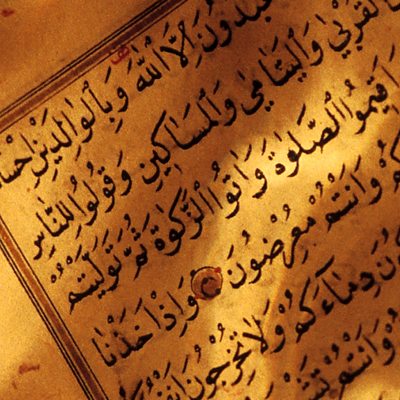 تعبدون إلا الله وبالوالدين إحسانا
القربى واليتامى والمساكين وقولوا للناس
اقيموا الصلوة واتوا الزكوة ثم توليتم
وانتم معرضون واذ اخذنا
دماءكم ولا تخرجون انفسكم
وانتم